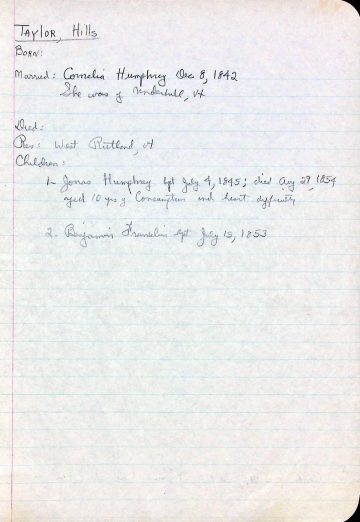 Taylor, Hills
Born:
Married: Cornelia Humphrey Dec 8, 1842
She was of Underhill, Vt
Died:
Res: West Rutland, Vt
Children:
1- Jonas Humphrey bpt July 4, 1845; died Aug 27, 1854
aged 10 yrs of Consumption and heart difficulty
2. Benjamin Franklin bpt July 15, 1853